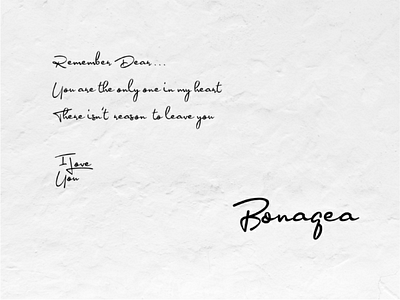 Remember Dear...
You are the only one in my heart
There isn't reason to leave you
I Love
You
Bonaqea